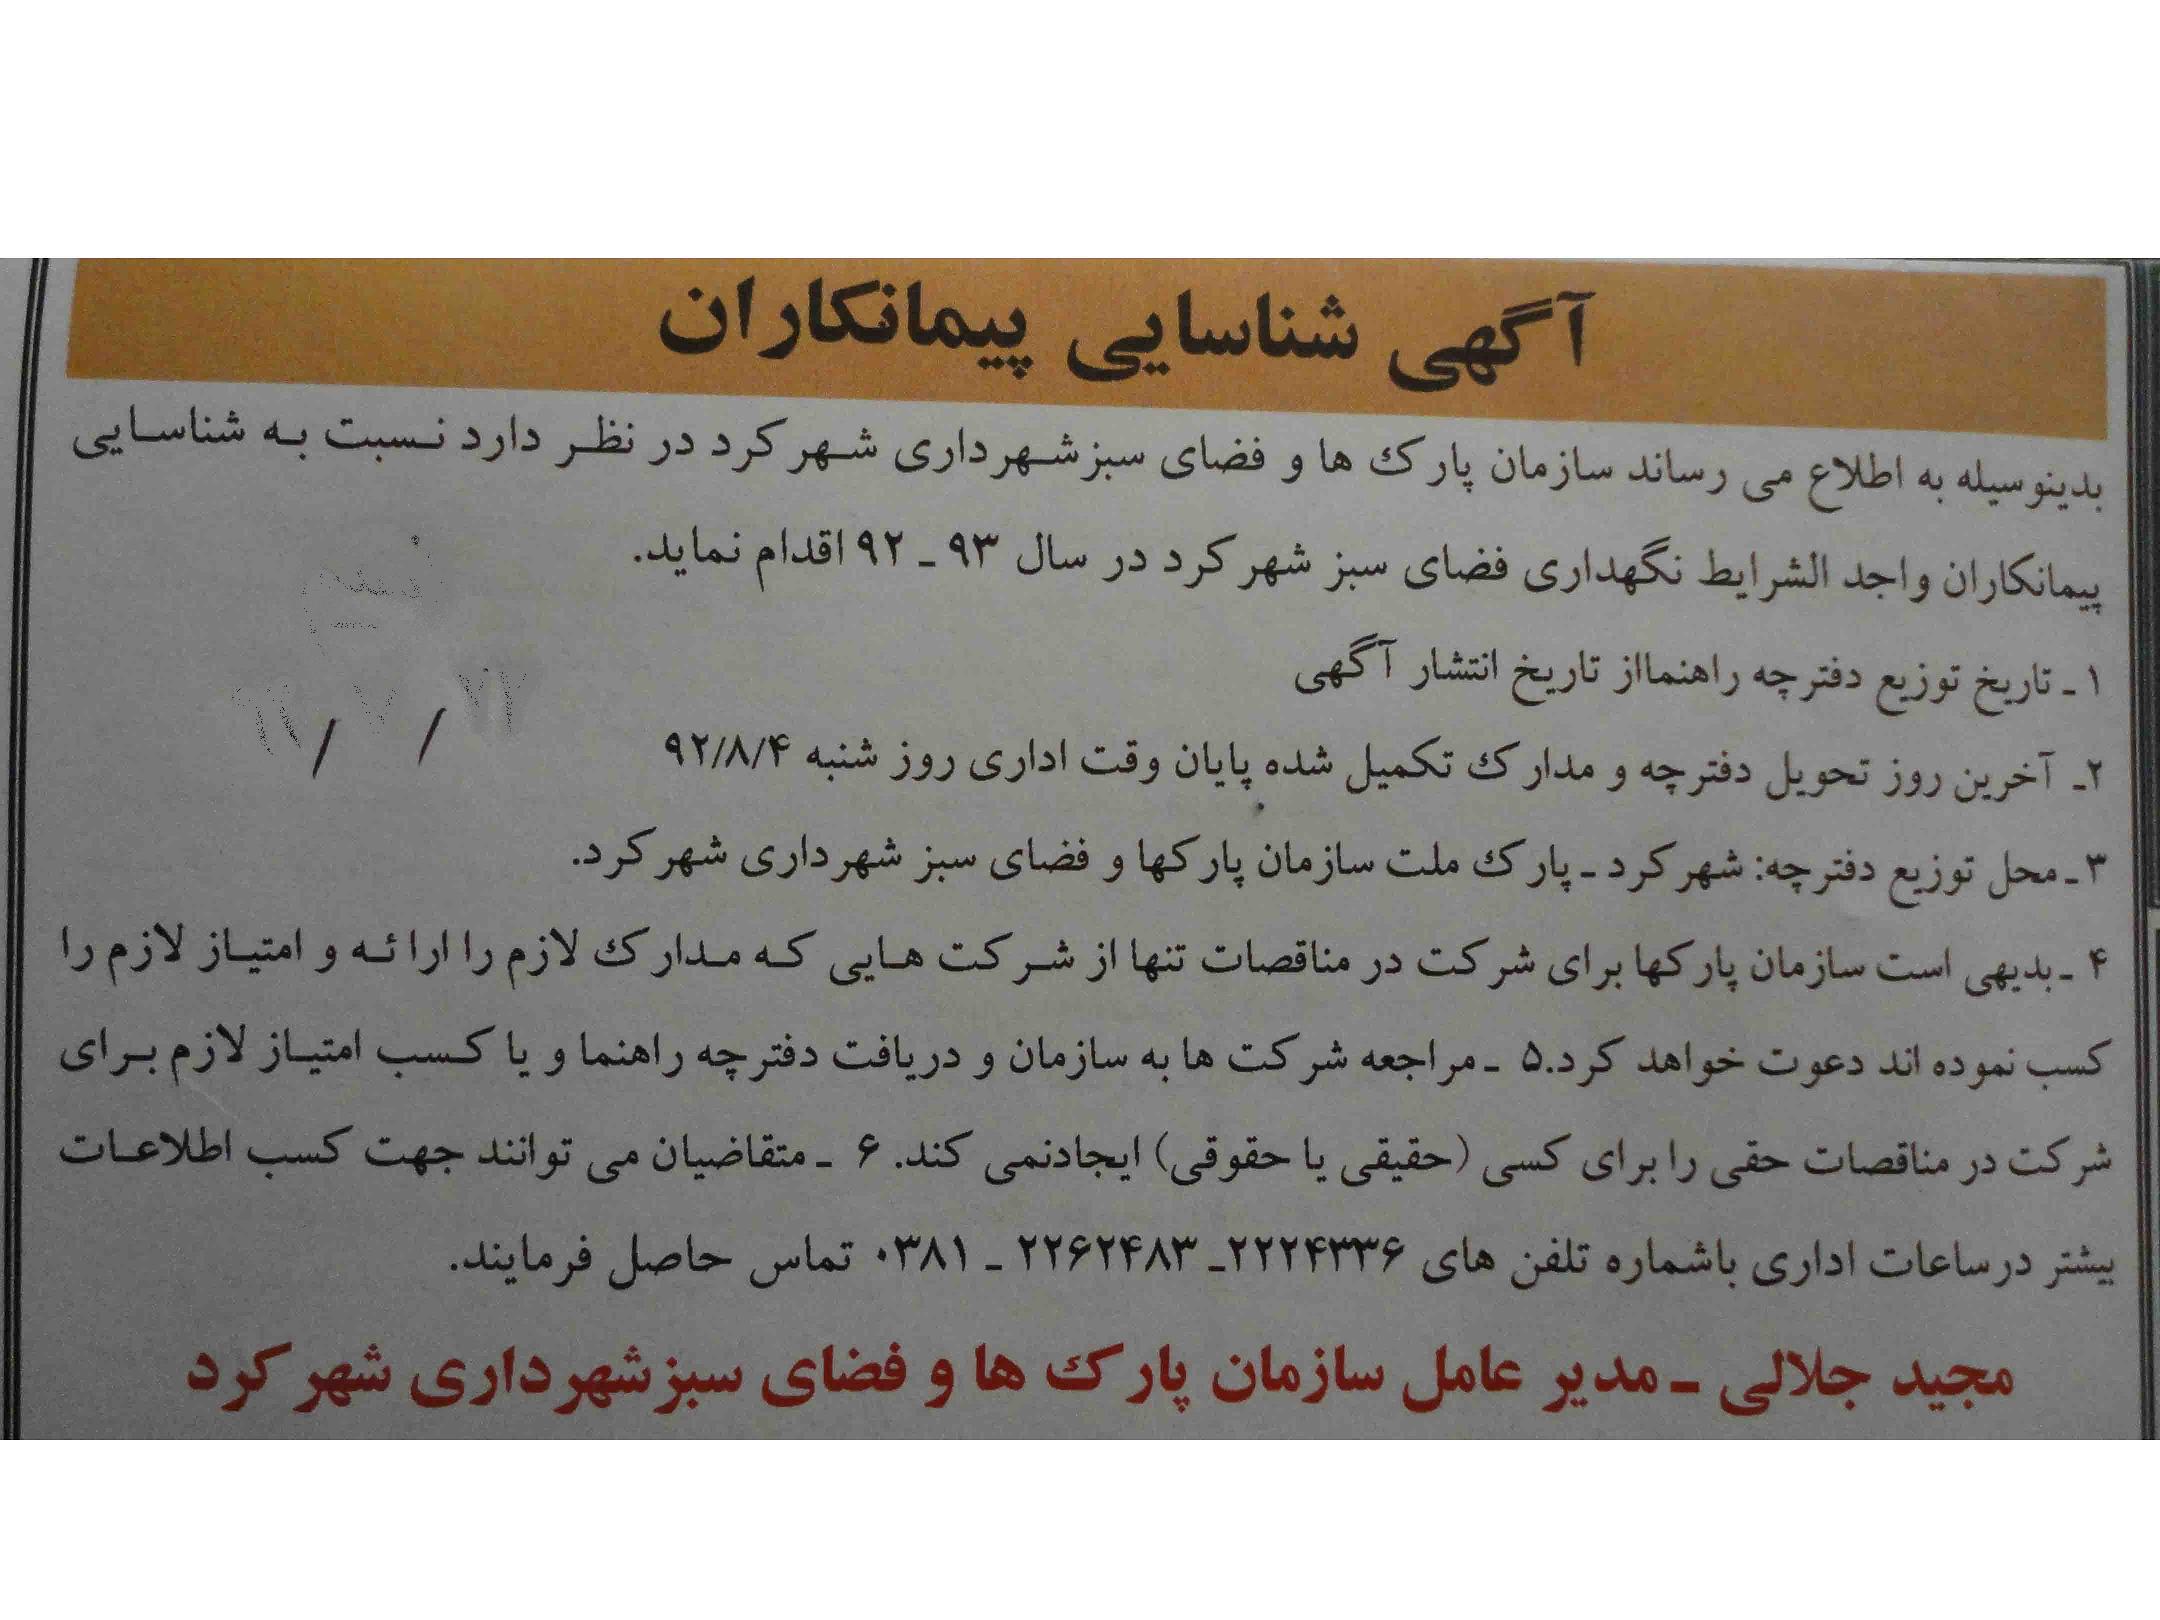 آگهی شناسایی پیمانکاران
بدینوسیله به اطلاع می رساند سازمان پارک ها و فضای سبزشهرداری شهرکرد در نظر دارد نسبت به شناسایی
پیمانکاران واجد الشرایط نگهداری فضای سبز شهرکرد در سال ۹۳ ـ ۹۲ اقدام نماید.
۱ـ تاریخ توزیع دفترچه راهنمااز تاریخ انتشار آگهی
۲ـ آخرین روز تحویل دفترچه و مدارک تکمیل شده پایان وقت اداری روز شنبه ۹۲/۸/۴
۳ـ محل توزیع دفترچه: شهرکرد ـ پارک ملت سازمان پارکها و فضای سبز شهرداری شهرکرد.
۴ ـ بدیهی است سازمان پارکها برای شرکت در مناقصات تنها از شرکت هایی که مدارک لازم را ارائه و امتیاز لازم را
کسب نموده اند دعوت خواهد کرد.۵ ـ مراجعه شرکت ها به سازمان و دریافت دفترچه راهنما و یا کسب امتیاز لازم برای
شرکت در مناقصات حقی را برای کسی (حقیقی یا حقوقی) ایجادنمی کند. ۶ ـ متقاضیان می توانند جهت کسب اطلاعات
بیشتر درساعات اداری باشماره تلفن های ۲۲۲۴۳۳۶ـ ۲۲۶۲۴۸۳ ـ ۰۳۸۱ تماس حاصل فرمایند.
مجید جلالی ـ مدیر عامل سازمان پارک ها و فضای سبزشهرداری شهرکرد